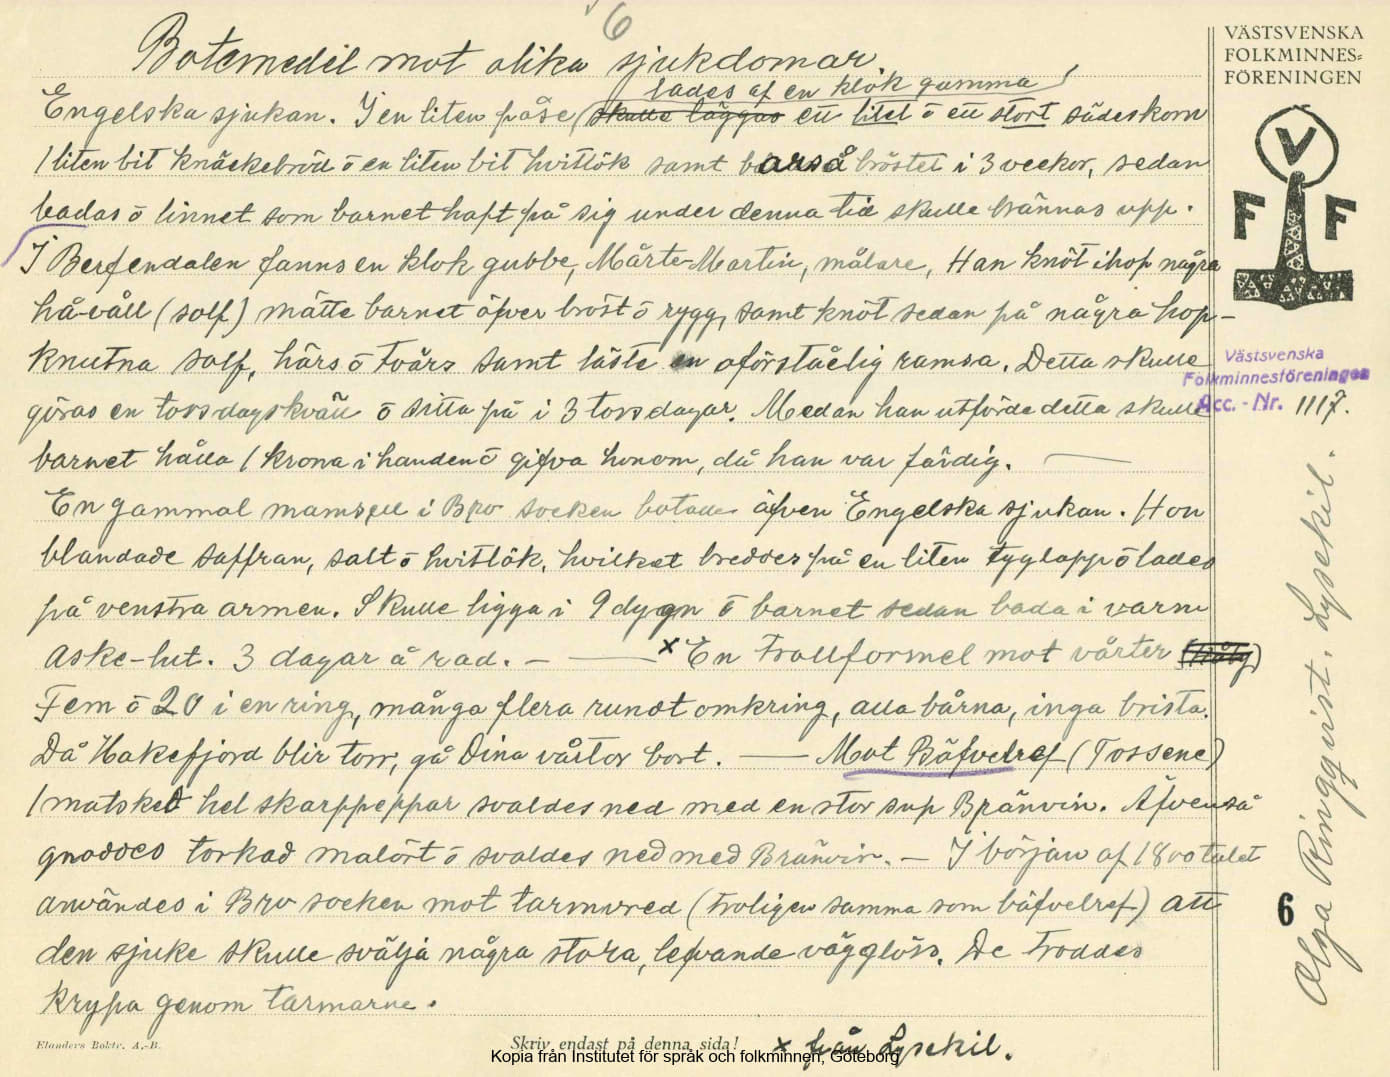 6
Botemedel mot olika sjukdomar.
lades af en klok gumma
Engelska sjukan. I en liten påse (skulle läggas ett litet ō ett stort sädeskorn
1 liten bit knäckebröd ō en liten bit hvitlök samt bäras å bröstet i 3 veckor, sedan
badas ō linnet som barnet haft på sig under denna tid skulle brännas upp.
I Berfendalen fanns en klok gubbe, Mårte-Martin, målare, Han knöt ihop några
hå-våll (solf) mätte barnet öfver bröst ō rygg, samt knöt sedan på några hop-
knutna solf, härs ō tvärs samt läste en oförståelig ramsa. Detta skulle
göras en torsdagskväll ō sitta på i 3 torsdagar. Medan han utförde detta skulle
barnet hålla 1 krona i handen ō gifva honom, då han var färdig.
En gammal mamsell i Bro socken botade äfven Engelska sjukan. Hon
blandade saffran, salt ō hvitlök, hvilket breddes på en liten tyglapp ō lades
på venstra armen. Skulle ligga i 9 dygn ō barnet sedan bada i varm
aske-lut. 3 dagar å rad. – — x En trollformel mot vårter
Fem ō 20 i en ring, många flera rundt omkring, alla bårna, inga brista.
Då Hakefjord blir torr, gå Dina vårtor bort. — Mot Bäfvelref (Tossene)
1 matsked hel skarppeppar svaldes ned med en stor sup Bränvin. Äfvenså
gnoddes torkad malört ō svaldes ned med Bränvin. – I början af 1800talet
användes i Bro socken mot tarmvred (troligen samma som bäfvelref) att
den sjuke skulle svälja några stora, lefvande vägglöss. De troddes
krypa genom tarmarne.
x från Lysekil.
Elanders Boktr. A.-B.
Skriv endast på denna sida!
Kopia från Institutet för språk och folkminnen, Göteborg
VÄSTSVENSKA
FOLKMINNES=
FÖRENINGEN
V
F F
Västsvenska
Folkminnesföreningen
Acc.-Nr. 1117.
Olga Ringqvist. Lysekil.
6